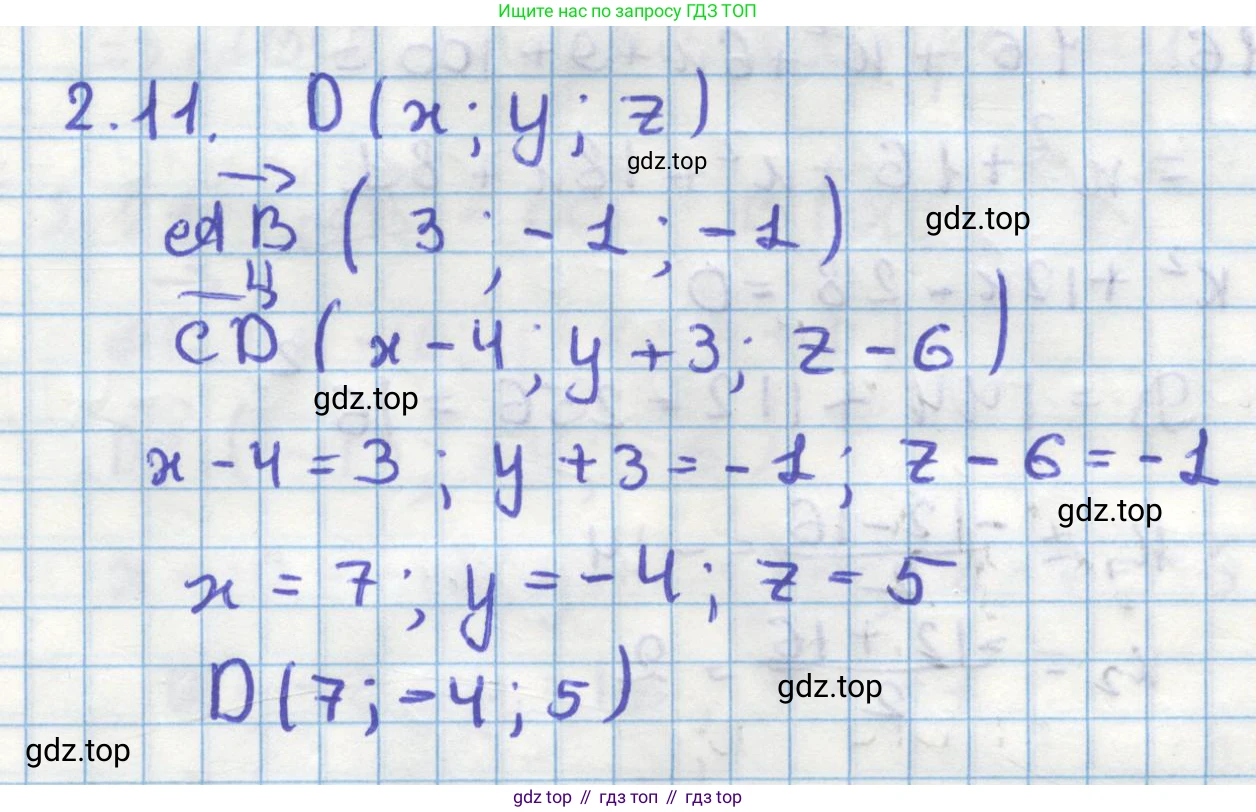 Ищите нас по запросу ГДЗ ТОП
2.11. D(x; y; z)
gdz.top
AB (3; -1; -1)
gdz.top
CD (x-4; y+3; z-6)
gdz.top
x-4=3; y+3=-1; z-6=-1
gdz.top
x=7; y=-4; z=5
D(7; -4; 5)
gdz.top
gdz.top
gdz top // гдз топ // гдз top